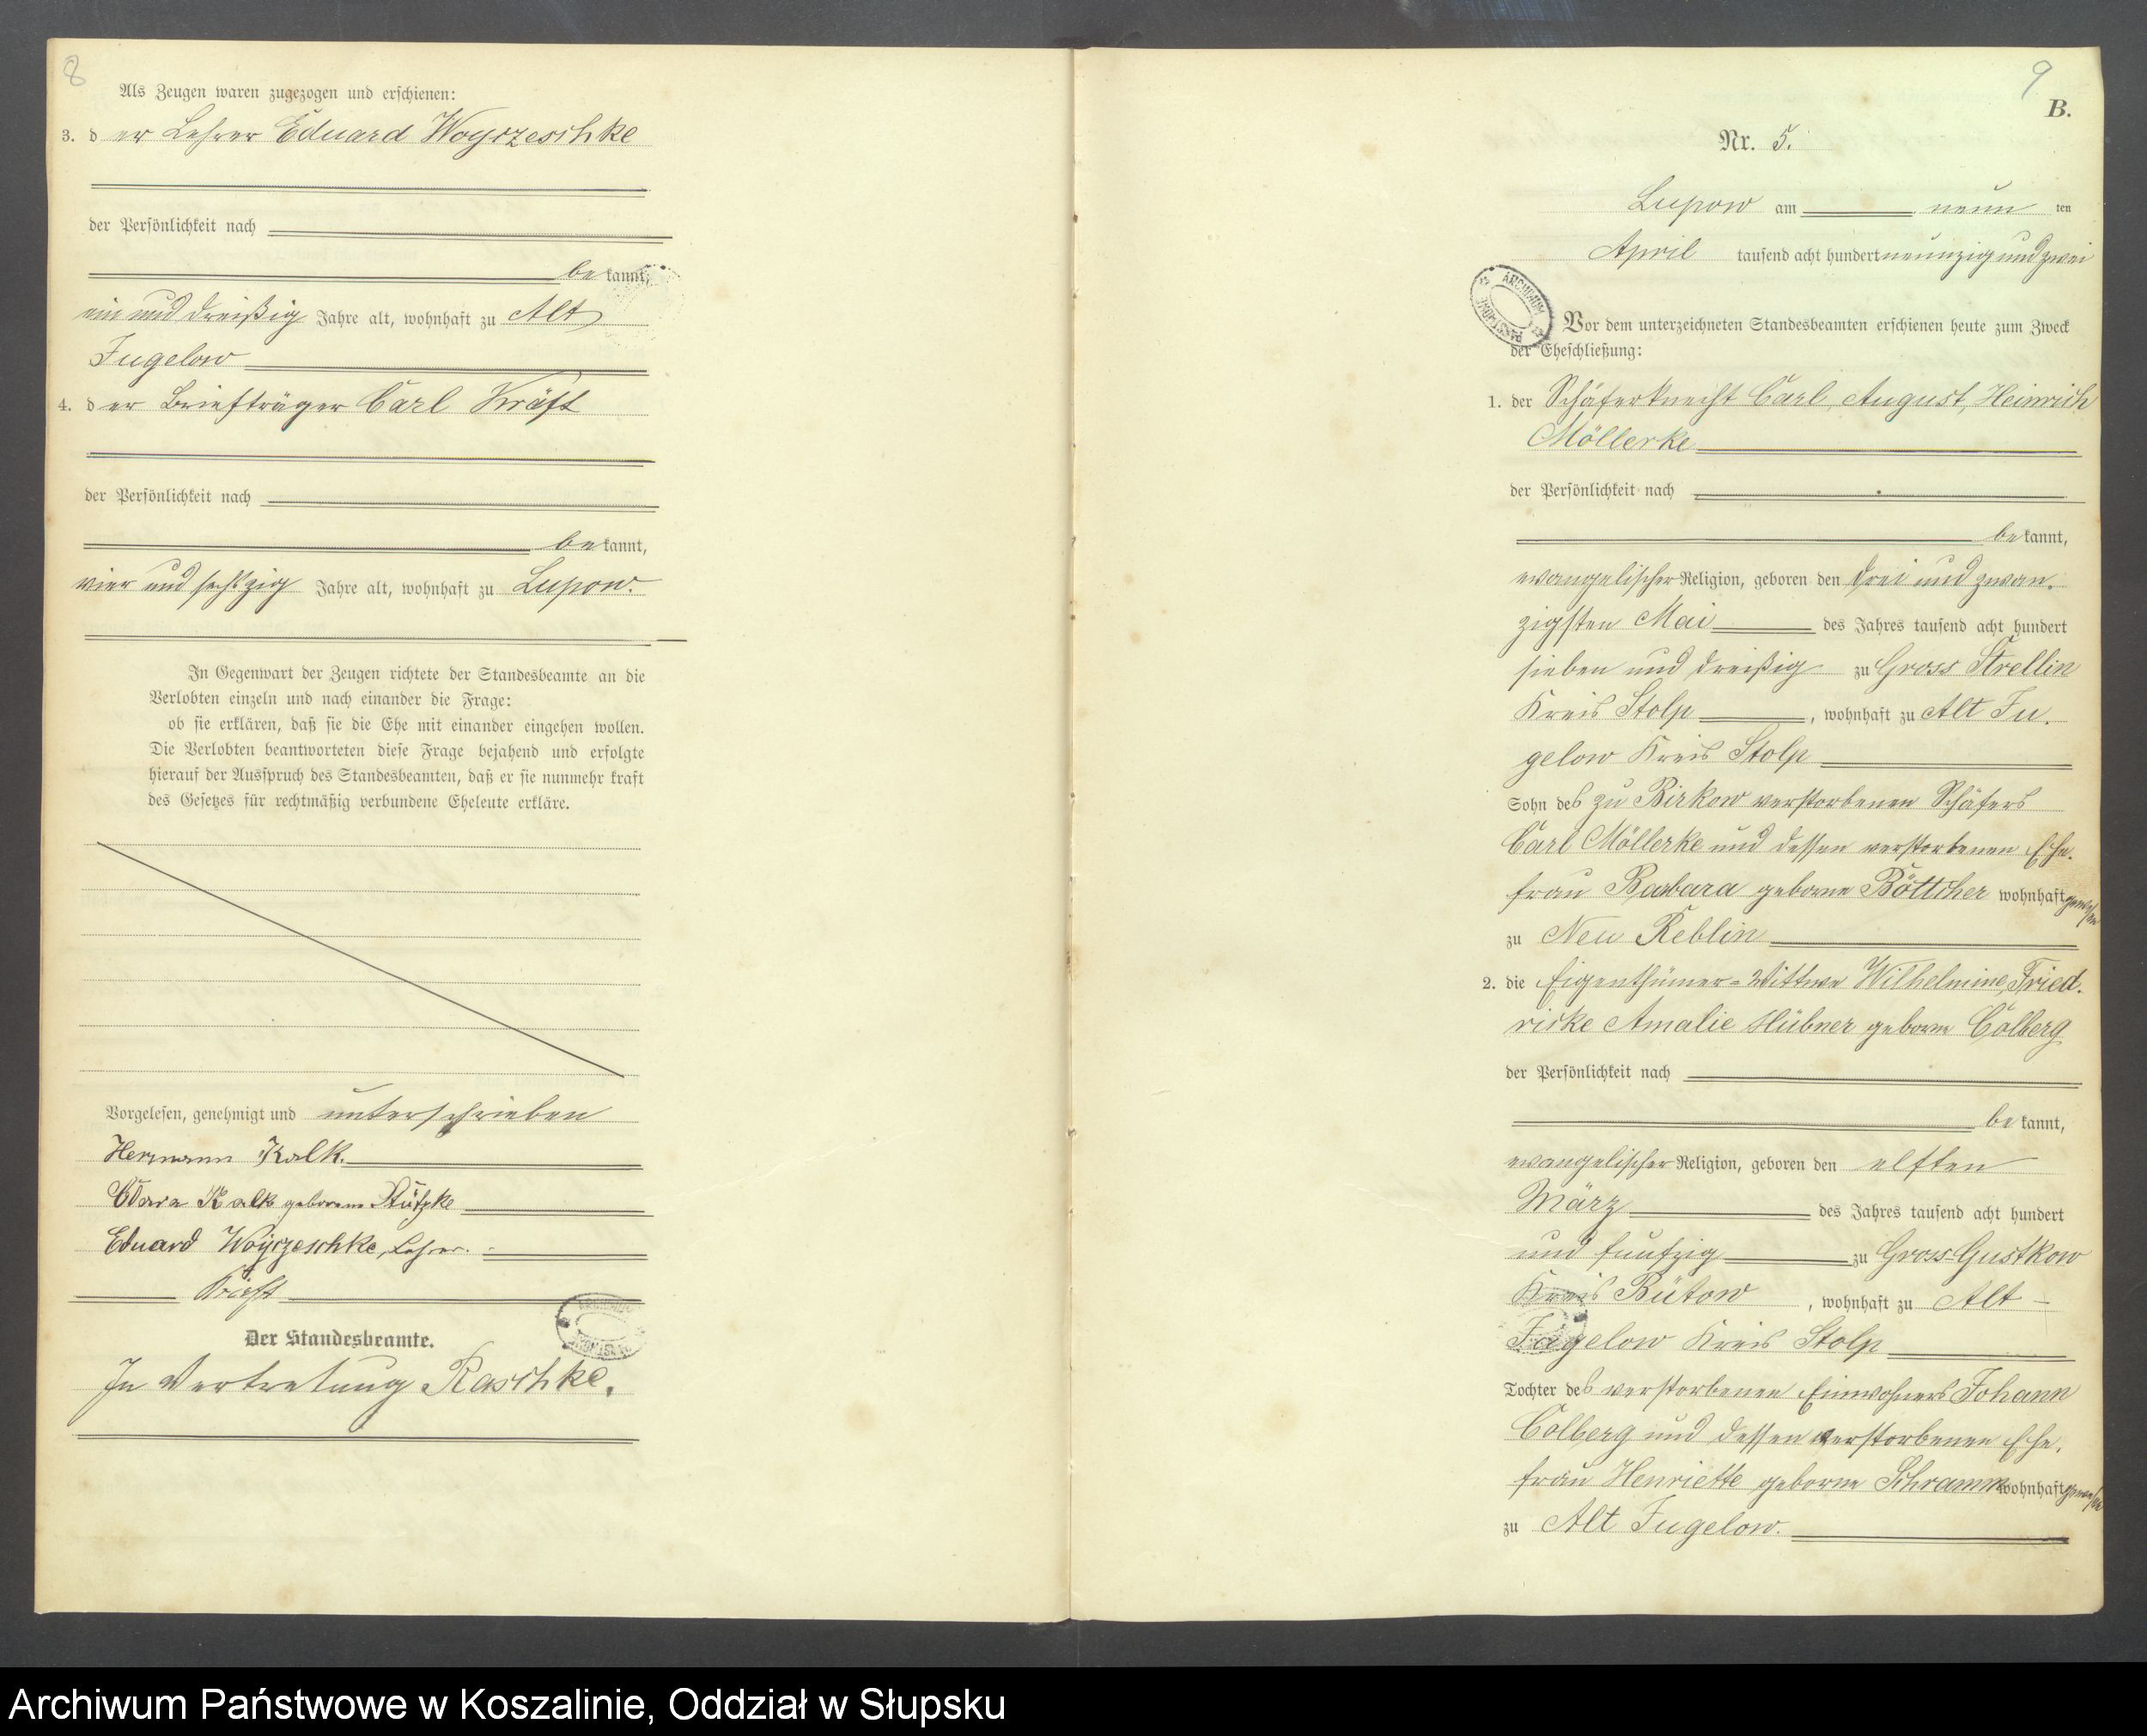 8
Als Zeugen waren zugezogen und erschienen:
3. der Lehrer Eduard Woyrzeschke
der Persönlichkeit nach
bekannt,
ein und dreißig Jahre alt, wohnhaft zu Alt
Jugelow
4. der Briefträger Carl Kräft
der Persönlichkeit nach
bekannt,
vier und sechszig Jahre alt, wohnhaft zu Lupow.
In Gegenwart der Zeugen richtete der Standesbeamte an die
Verlobten einzeln und nach einander die Frage:
ob sie erklären, daß sie die Ehe mit einander eingehen wollen.
Die Verlobten beantworteten diese Frage bejahend und erfolgte
hierauf der Ausspruch des Standesbeamten, daß er sie nunmehr kraft
des Gesetzes für rechtmäßig verbundene Eheleute erkläre.
Vorgelesen, genehmigt und unterschrieben
Hermann Kalk.
Kalk geborene
Eduard Woyrzeschke, Lehrer.
Kräft
Der Standesbeamte.
In Vertretung Raschke.
9
B.
Nr. 5.
Lupow am neun ten
April tausend acht hundert neunzig und zwei
Vor dem unterzeichneten Standesbeamten erschienen heute zum Zweck
der Eheschließung:
1. der Schäferknecht Carl, August, Heinrich
Möllerke
der Persönlichkeit nach
bekannt,
evangelischer Religion, geboren den drei und zwan-
zigsten Mai des Jahres tausend acht hundert
sieben und dreißig zu Gross Strellin
Kreis Stolp, wohnhaft zu Alt Ju-
gelow Kreis Stolp
Sohn des zu Birkow verstorbenen Schäfers
Carl Möllerke und dessen verstorbenen Ehe-
frau Barbara geborne Böttcher wohnhaft gewesen
zu Neu Reblin
2. die Eigenthümer-Wittwe Wilhelmine, Fried-
ricke Amalie Hübner geborne Colberg
der Persönlichkeit nach
bekannt,
evangelischer Religion, geboren den elften
März des Jahres tausend acht hundert
und funfzig zu Gross Gustkow
Kreis Bütow, wohnhaft zu Alt-
Jugelow Kreis Stolp
Tochter des verstorbenen Einwohners Johann
Colberg und dessen verstorbenen Ehe-
frau Henriette geborne Schramm wohnhaft gewesen
zu Alt Jugelow.
Archiwum Państwowe w Koszalinie, Oddział w Słupsku